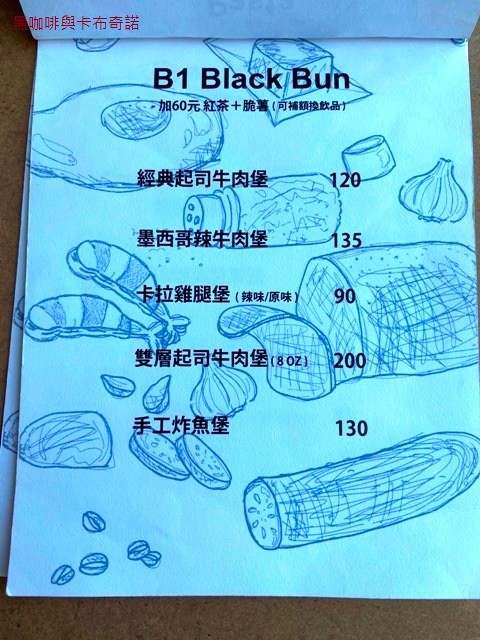 黑咖啡與卡布奇諾
B1 Black Bun
加60元 紅茶＋脆薯 ( 可補額換飲品 )
經典起司牛肉堡 120
墨西哥辣牛肉堡 135
卡拉雞腿堡 ( 辣味/原味 ) 90
雙層起司牛肉堡 ( 8 OZ ) 200
手工炸魚堡 130